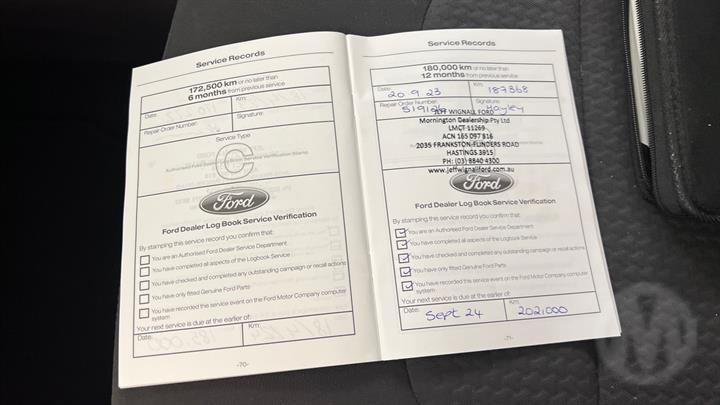 Service Records
172,500 km or no later than
6 months from previous service
Date:
Km:
Repair Order Number:
Signature:
Service Type
C
Authorised Ford Dealer Log Book Service Verification Stamp
Ford
Ford Dealer Log Book Service Verification
By stamping this service record you confirm that:
You are an Authorised Ford Dealer Service Department
You have completed all aspects of the Logbook Service
You have checked and completed any outstanding campaign or recall actions
You have only fitted Genuine Ford Parts
You have recorded this service event on the Ford Motor Company computer
system
Your next service is due at the earlier of:
Date:
Km:
-70-
Service Records
180,000 km or no later than
12 months from previous service
Date:
Km:
20.9.23
187368
Repair Order Number:
Signature:
Hayley
JEFF WIGNALL FORD
Mornington Dealership Pty Ltd
LMCT 11269
ACN 165 097 816
2035 FRANKSTON-FLINDERS ROAD
HASTINGS 3915
PH: (03) 8840 4300
www.jeffwignallford.com.au
Ford
Ford Dealer Log Book Service Verification
By stamping this service record you confirm that:
You are an Authorised Ford Dealer Service Department
You have completed all aspects of the Logbook Service
You have checked and completed any outstanding campaign or recall actions
You have only fitted Genuine Ford Parts
You have recorded this service event on the Ford Motor Company computer
system
Your next service is due at the earlier of:
Date:
Km:
Sept 24
202,000
-71-